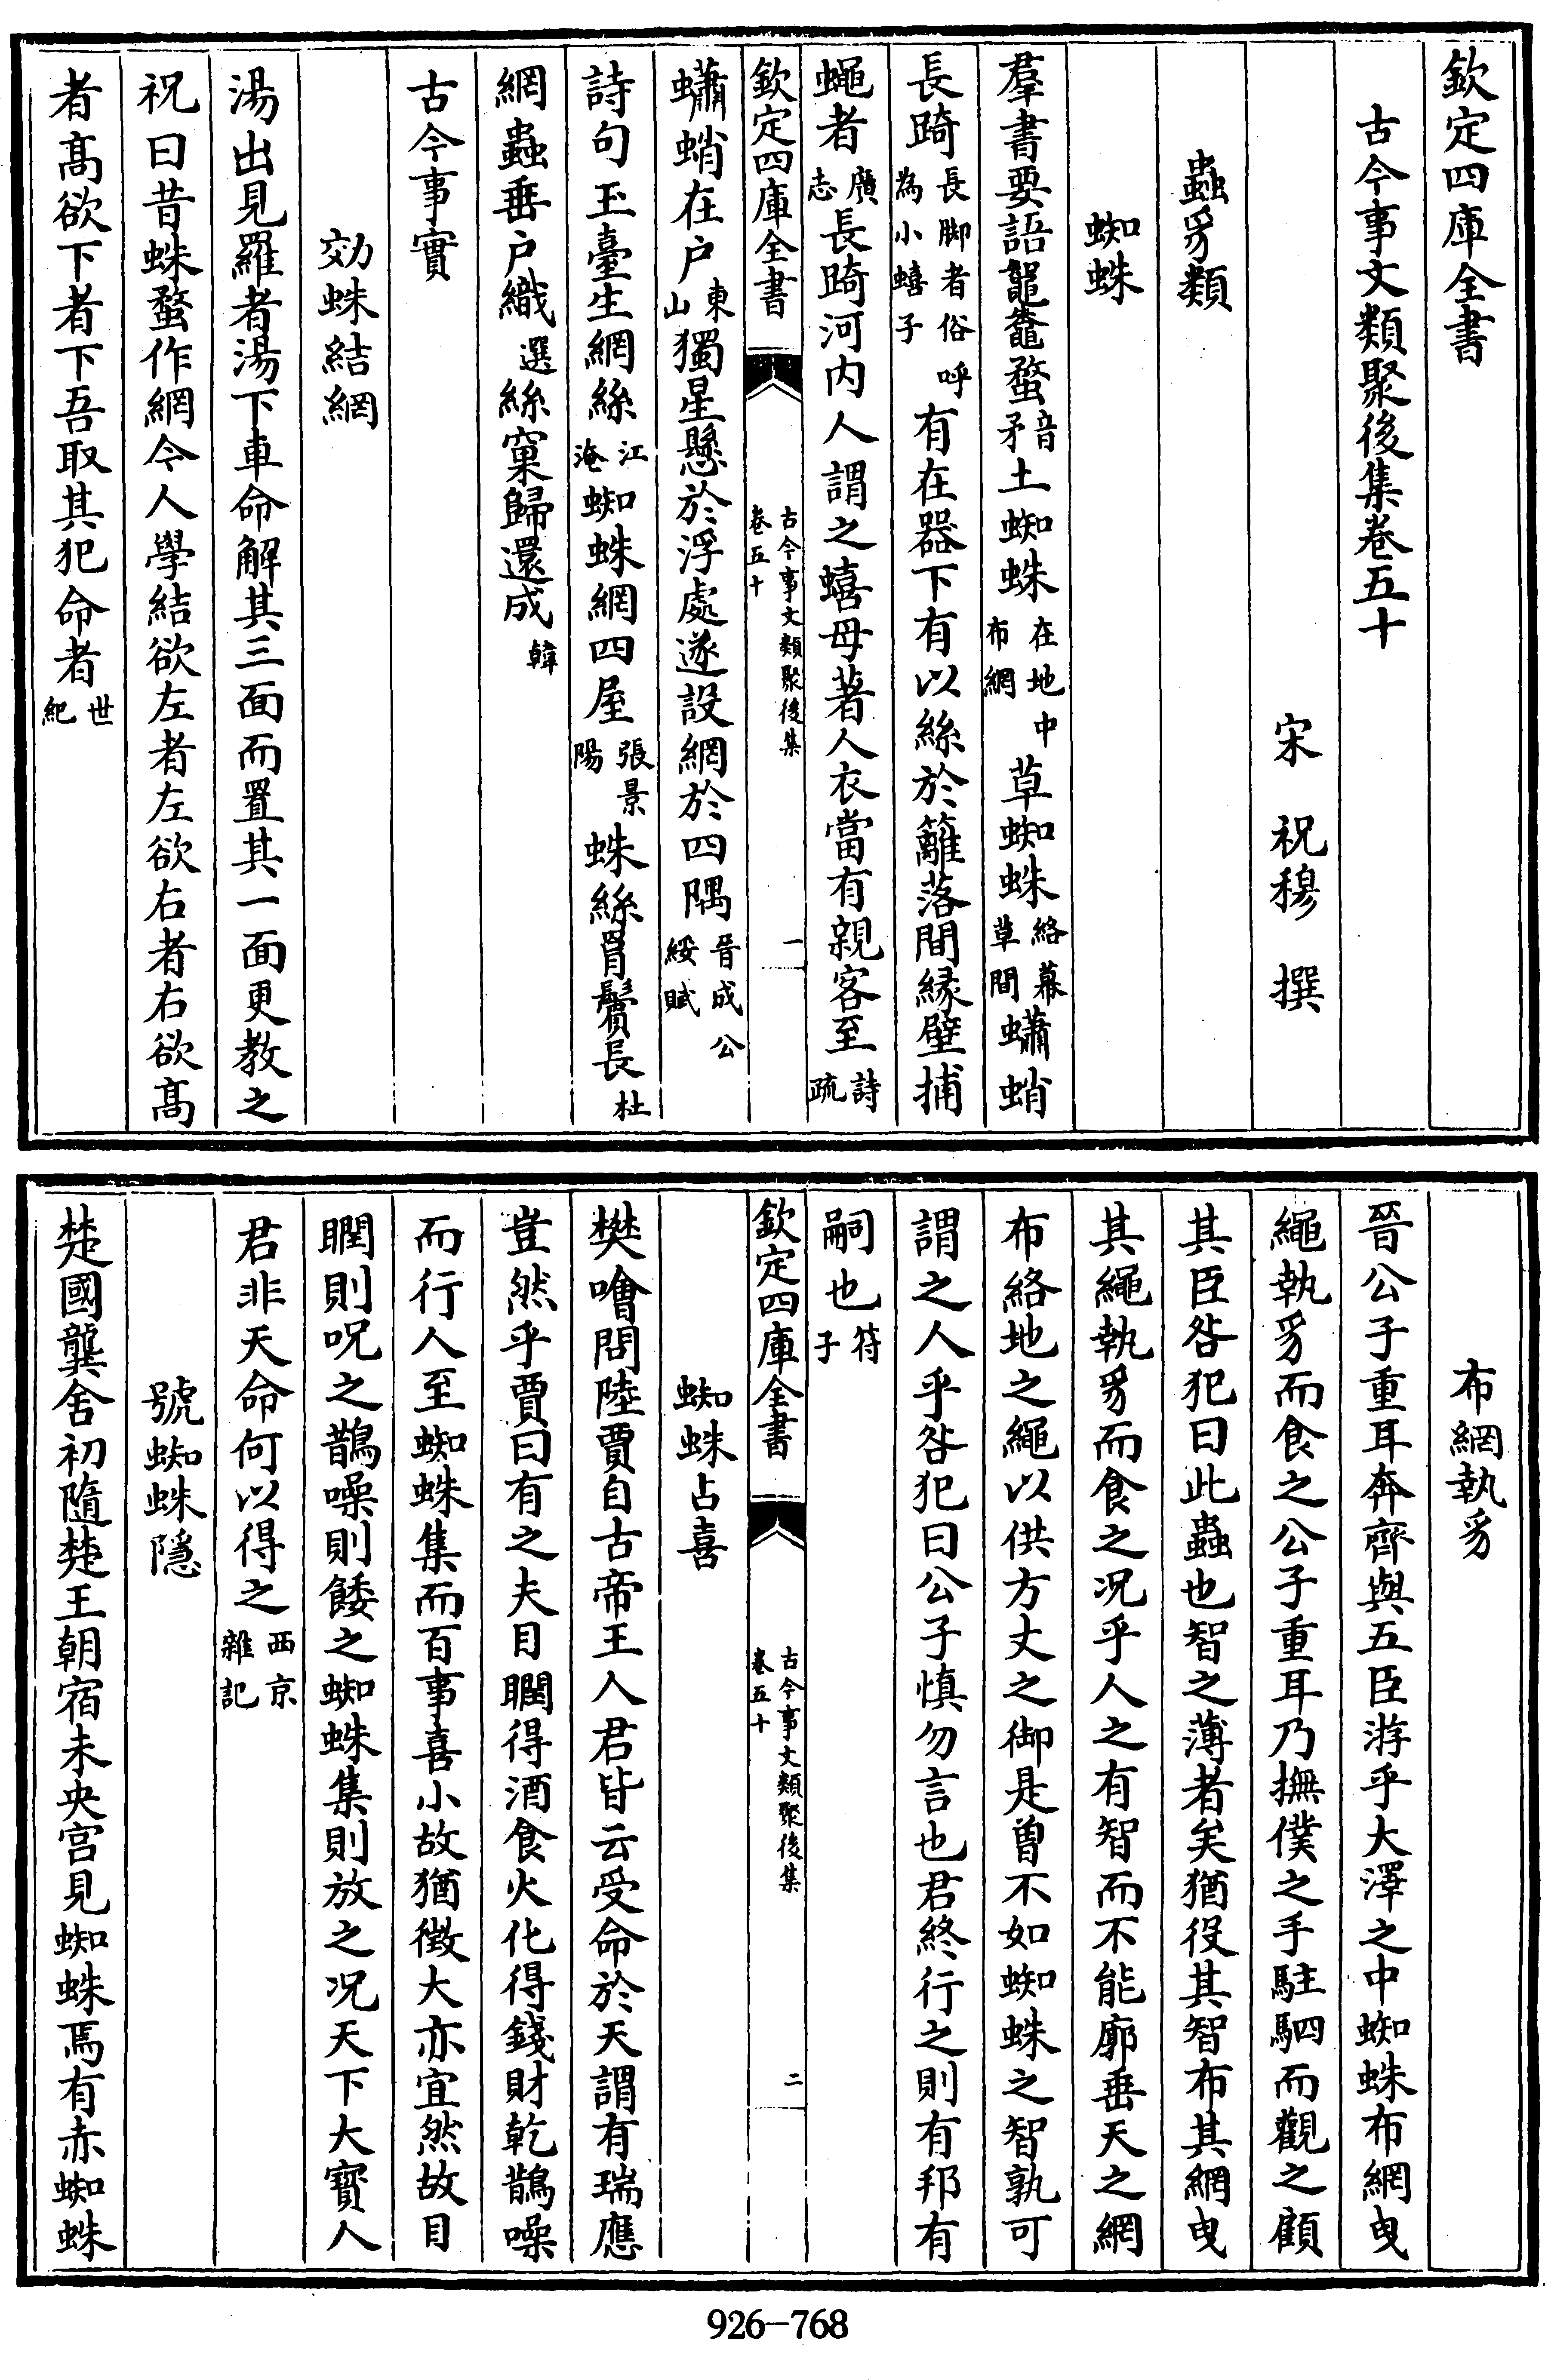 欽定四庫全書
古今事文類聚後集卷五十
宋 祝穆 撰
蟲豸類
蜘蛛
羣書要語鼅鼄蝥音矛土蜘蛛在地中布網草蜘蛛絡幕草間蠨蛸
長踦長脚者俗呼為小蟢子有在器下有以絲於籬落間緣壁捕
蠅者廣志長踦河内人謂之蟢母著人衣當有親客至詩疏
欽定四庫全書
古今事文類聚後集
卷五十
一
蠨蛸在户東山獨星懸於浮處遂設網於四隅晉成公綏賦
詩句玉臺生網絲江淹蜘蛛網四屋張景陽蛛絲罥鬢長杜
網蟲垂户織選絲窠歸還成韓
古今事實
効蛛結網
湯出見羅者湯下車命解其三面而置其一面更教之
祝曰昔蛛蝥作網今人學結欲左者左欲右者右欲髙
者髙欲下者下吾取其犯命者世紀
布網執豸
晉公子重耳奔齊與五臣游乎大澤之中蜘蛛布網曳
繩執豸而食之公子重耳乃撫僕之手駐駟而觀之顧
其臣咎犯曰此蟲也智之薄者矣猶役其智布其網曳
其繩執豸而食之况乎人之有智而不能廓垂天之網
布絡地之繩以供方丈之御是曾不如蜘蛛之智孰可
謂之人乎咎犯曰公子慎勿言也君終行之則有邦有
嗣也符子
欽定四庫全書
古今事文類聚後集
卷五十
二
蜘蛛占喜
樊噲問陸賈自古帝王人君皆云受命於天謂有瑞應
豈然乎賈曰有之夫目瞤得酒食火化得錢財乾鵲噪
而行人至蜘蛛集而百事喜小故猶徴大亦宜然故目
瞤則呪之鵲噪則餧之蜘蛛集則放之况天下大寳人
君非天命何以得之西京雜記
號蜘蛛隱
楚國龔舍初隨楚王朝宿未央宫見蜘蛛焉有赤蜘蛛
926-768